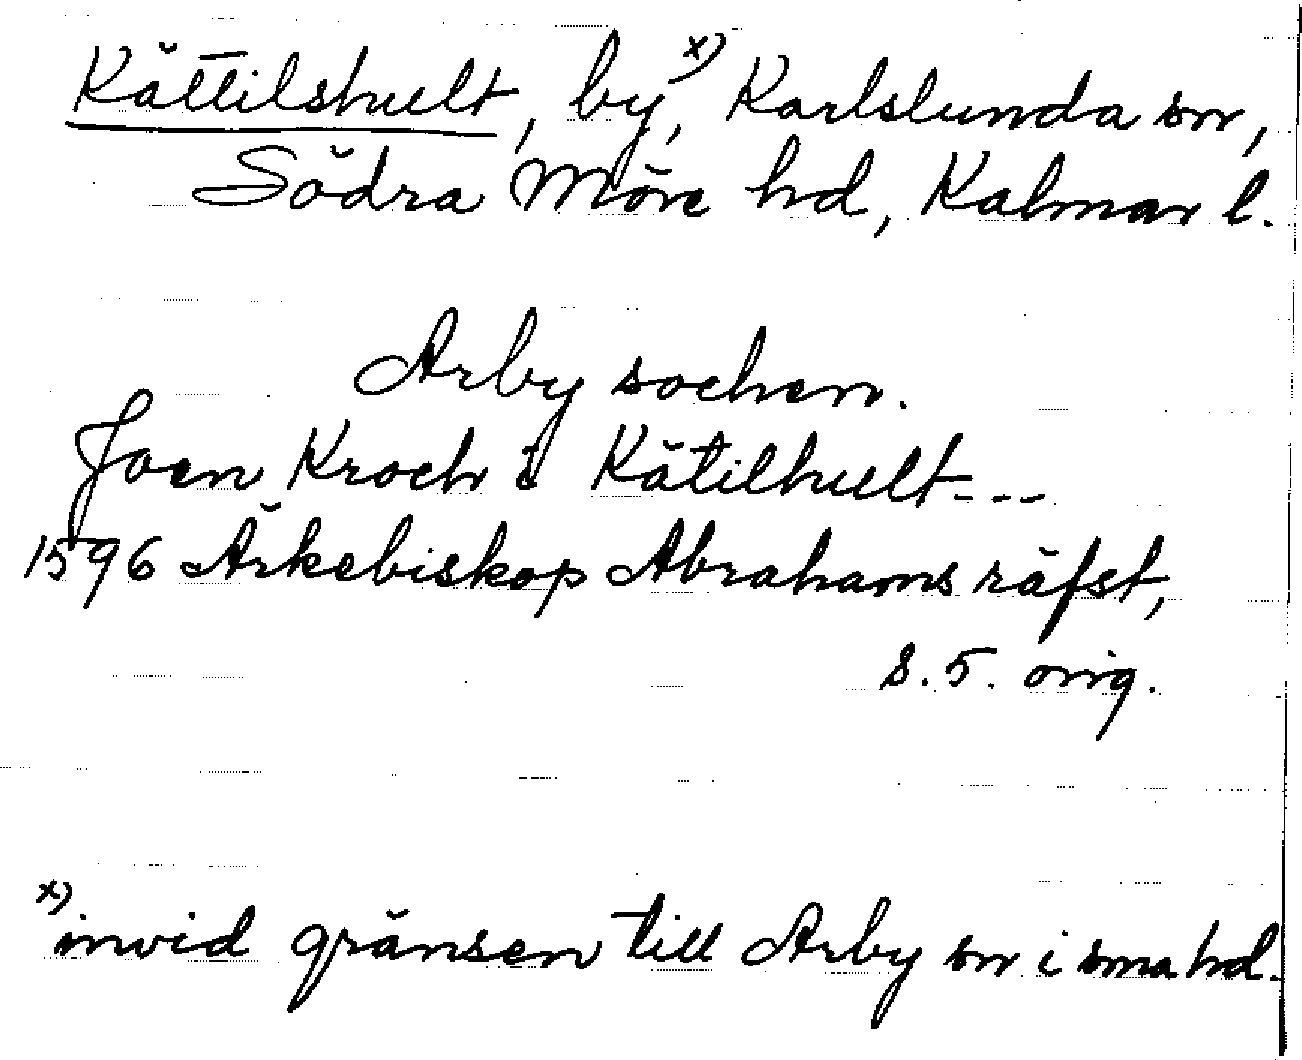 Kättilshult, by,x) Karlslunda sn,
Södra Möre hd, Kalmar l.
Arby sochen.
Joen Kroch i Kätilhult---
1596 Ärkebiskop Abrahams räfst,
s. 5. orig.
x) invid gränsen till Arby sn i sma hd.